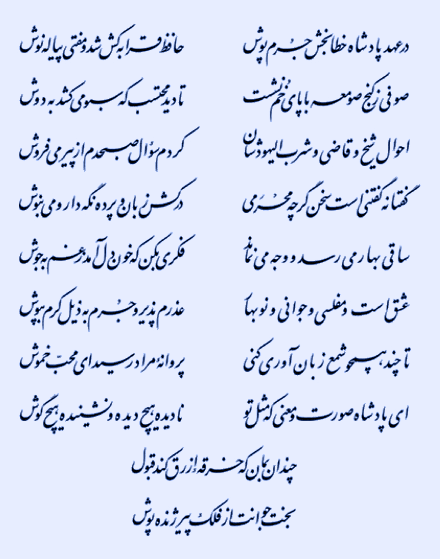 در عهد پادشاه خطابخش جرم پوش حافظ قرابه کش شد و مفتی پیاله نوش
صوفی ز کنج صومعه با پای خم نشست تا دید محتسب که سبو می کشد به دوش
احوال شیخ و قاضی و شرب الیهودشان کردم سؤال صبحدم از پیر می فروش
گفتا نه گفتنی است سخن گرچه محرمی درکش زبان و پرده نگه دار و می بنوش
ساقی بهار می رسد و وجه می نماند فکری بکن که خون دل آمد ز غم به جوش
عشق است و مفلسی و جوانی و نوبهار عذرم پذیر و جرم به ذیل کرم بپوش
تا چند همچو شمع زبان آوری کنی پروانه مراد رسید ای محب خموش
ای پادشاه صورت و معنی که مثل تو نادیده هیچ دیده و نشنیده هیچ گوش
چندان بمان که خرقه ازرق کند قبول
بخت جوانت از فلک پیر ژنده پوش